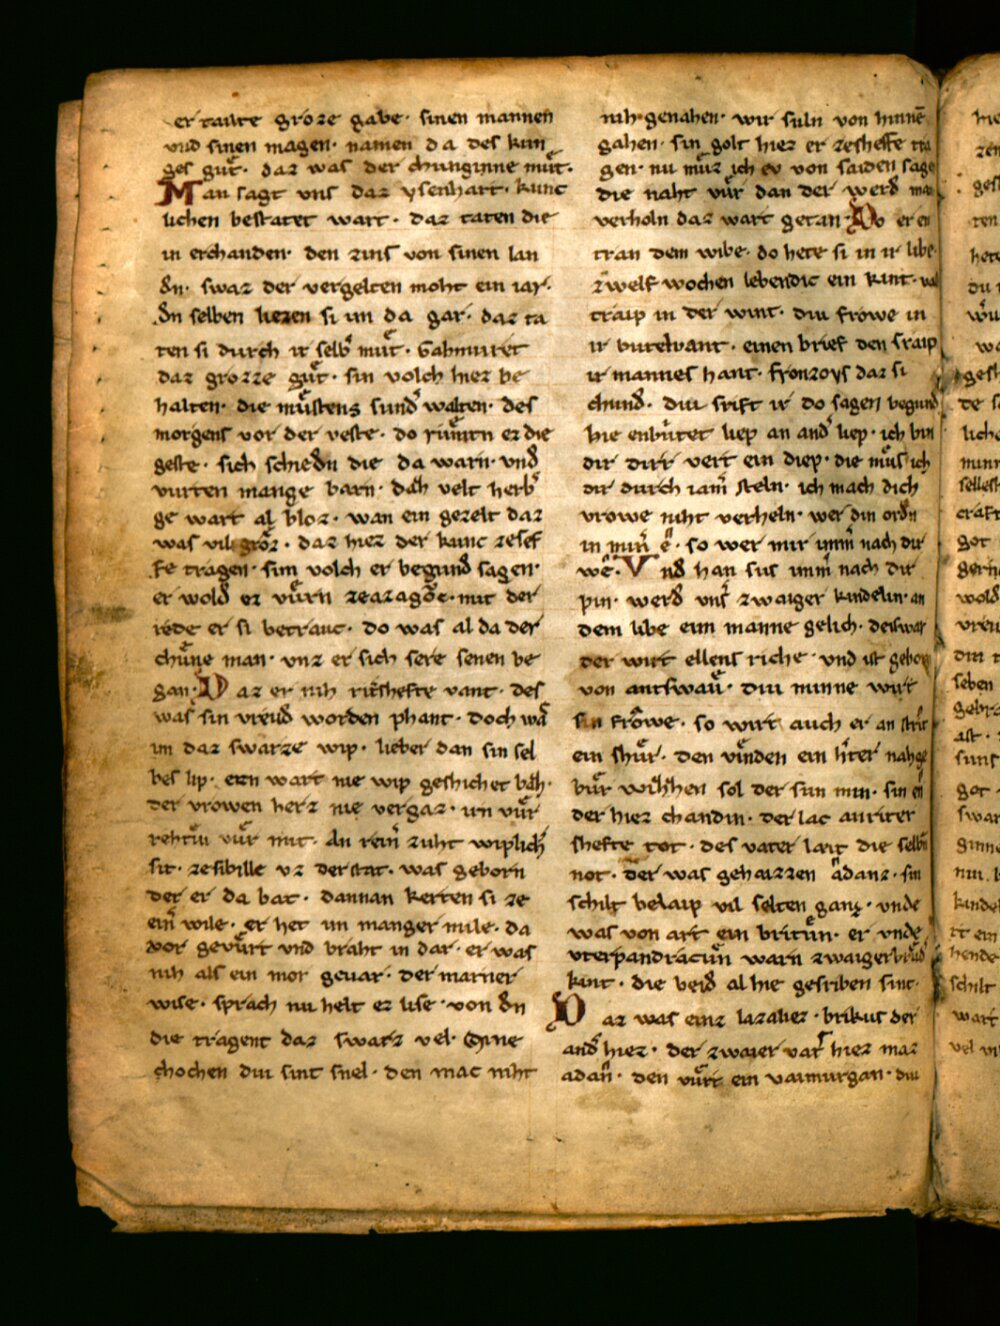 er tailte groze gabe · sinen mannen
vnd sinen magen · namen da des kun
ges gůt · daz was der chunginne můt ·
Man sagt vns daz ysenhart · kunc
lichen bestatet wart · daz taten die
in erchanden · den zins von sinen lan
dn · swaz der vergelten moht ein iar ·
dn selben liezen si im da gar · daz ta
ten si durch ir selbs můt · Gahmuret
daz grozze gůt · sin volch hiez be
halten · die můstens sundˀ walten · des
morgens vor der veste · do růmtn ez die
geste · sich schiedn die da warn · vnd
vurten mange barn · daz velt herb
ge wart al bloz · wan ein gezelt daz
was vil groz · daz hiez der kunc zesef
fe tragen · sim volch er begund sagen ·
er wold ez vůrn zeazagoc · mit der
rede er si betrauc · do was al da der
chůne man · vnz er sich sere senen be
gan · Daz er nih ritˀshefte vant · des
was sin vreud worden phant · doch waˢ
im daz swarze wip · lieber dan sin sel
bes lip · ezen wart nie wip geshichet baz ·
der vrowen herz nie vergaz · im vůr
rehtiu vůr mit · An reinˀ zuht wiplichˀ
sit · zesibille vz der stat · was geborn
der er da bat · dannan kerten si ze
einˀ wile · er het im manger mile · da
vor gevůrt vnd braht in dar · er was
nih als ein mor geuar · der marner
wise · sprach nu helt ez lise · von dn
die tragent daz swarz vel · Mine
chochen diu sint snel · den mac niht
nih genahen · wir suln von hinnē
gahen · sin golt hiez er zesheffe tra
gen · nu můz ich ev von saiden sage
die naht vůr dan der werd man
verholn daz wart getan · Do er en
tran dem wibe · do hete si in ir libe
zwelf wochen lebendic ein kint · vast
traip in der wint · diu frowe in
ir butelvant · einen brief den sraip
ir mannes hant · fronzoys daz si
chund · diu srift ir do sagen begund
hie enbůtet liep an andˀ liep · ich bin
dir dirr vert ein diep · die můs ich
dir durch iamˀ steln · ich mach dich
vrowe niht verheln · wer din ordn
in minˀ e · so wer mir immˀ nach dir
we · Vnd han sus immˀ nach dir
pin · werd vnsˀ zwaiger kindelin · an
dem libe eim manne gelich · deiswar
der wirt ellens riche · vnd ist geborn
von antswaů · diu minne wirt
sin frowe · so wirt auch er an strit
ein shůr · den vinden ein hˀter nahge
bůr · wizzhen sol der sun min · sin en
der hiez chandin · der lac an riter
shefte tot · des vater lait die selbn
not · der was gehaizzen adanz · sin
schilt belaip vil selten ganz · vnde
was von art ein britůn · er vnde
vterpandracůn warn zwaiger brůd
kint · die beid al hie gesriben sint ·
Daz was einz lazaliez · brikus der
andˀ hiez · der zwaier vatˀ hiez maz
adan · den vůrt ein vaimurgan · diu